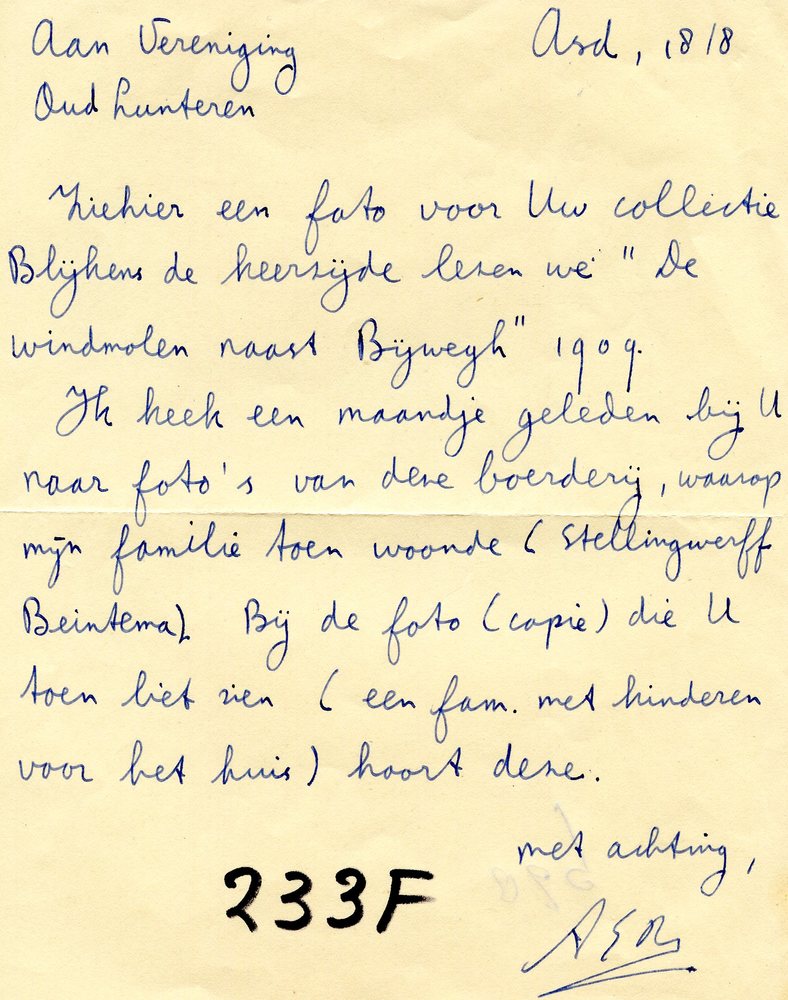 Aan Vereniging Asd, 18/8
Oud Lunteren
Ziehier een foto voor Uw collectie
Blijkens de keerzijde lezen we "De
windmolen naast Bijwegh" 1909.
Ik keek een maandje geleden bij U
naar foto's van deze boerderij, waarop
mijn familie toen woonde (Stellingwerff
Beintema). Bij de foto (copie) die U
toen liet zien (een fam. met kinderen
voor het huis) hoort deze.
met achting,
233F